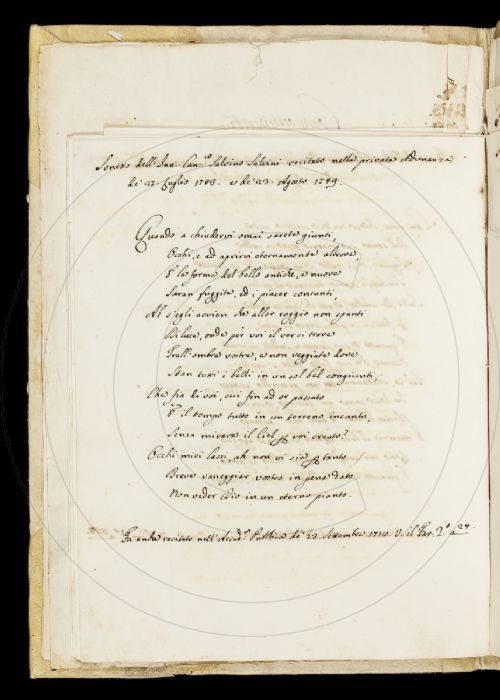 Sonetto dell'Inn. Can.co Salvino Salvini recitato nella privata Adunanza
de' 27. Luglio 1743. e de' 23. Agosto 1749.
Quando a chiudervi omai sarete giunti,
Occhi, e ad aprirvi eternamente altrove,
E le forme del bello antiche, e nuove
Saran fuggite, ed i piacer consunti,
Ah s'egli avvien che allor raggio non spunti
Di luce, onde per voi il ver si trove
Trall'ombre vostre, e non veggiate dove
Stan tutti i belli in un sol bel congiunti,
Che fia di voi, cui fin ad or passato
È il tempo tutto in un terreno incanto,
Senza mirare il Ciel per voi creato?
Occhi miei lassi, ah non vi sia per tanto
Breve vaneggiar vostro in pena dato
Non veder Dio in un eterno pianto.
Fu anche recitato nell'Accad. Pubblica de' 23. Settembre 1710. V. il Par. 2.o a 24.